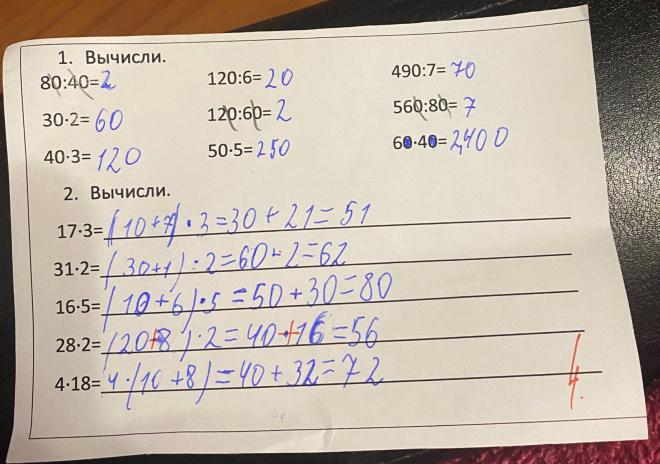 1. Вычисли.
80:40=2 120:6=20 490:7=70
30·2=60 120:60=2 560:80=7
40·3=120 50·5=250 60·40=2400
2. Вычисли.
17·3=(10+7)·3=30+21=51
31·2=(30+1)·2=60+2=62
16·5=(10+6)·5=50+30=80
28·2=(20+8)·2=40+16=56
4·18=4·(10+8)=40+32=72
4.